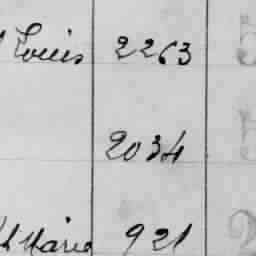 Louis 2263
2034
Marie 921